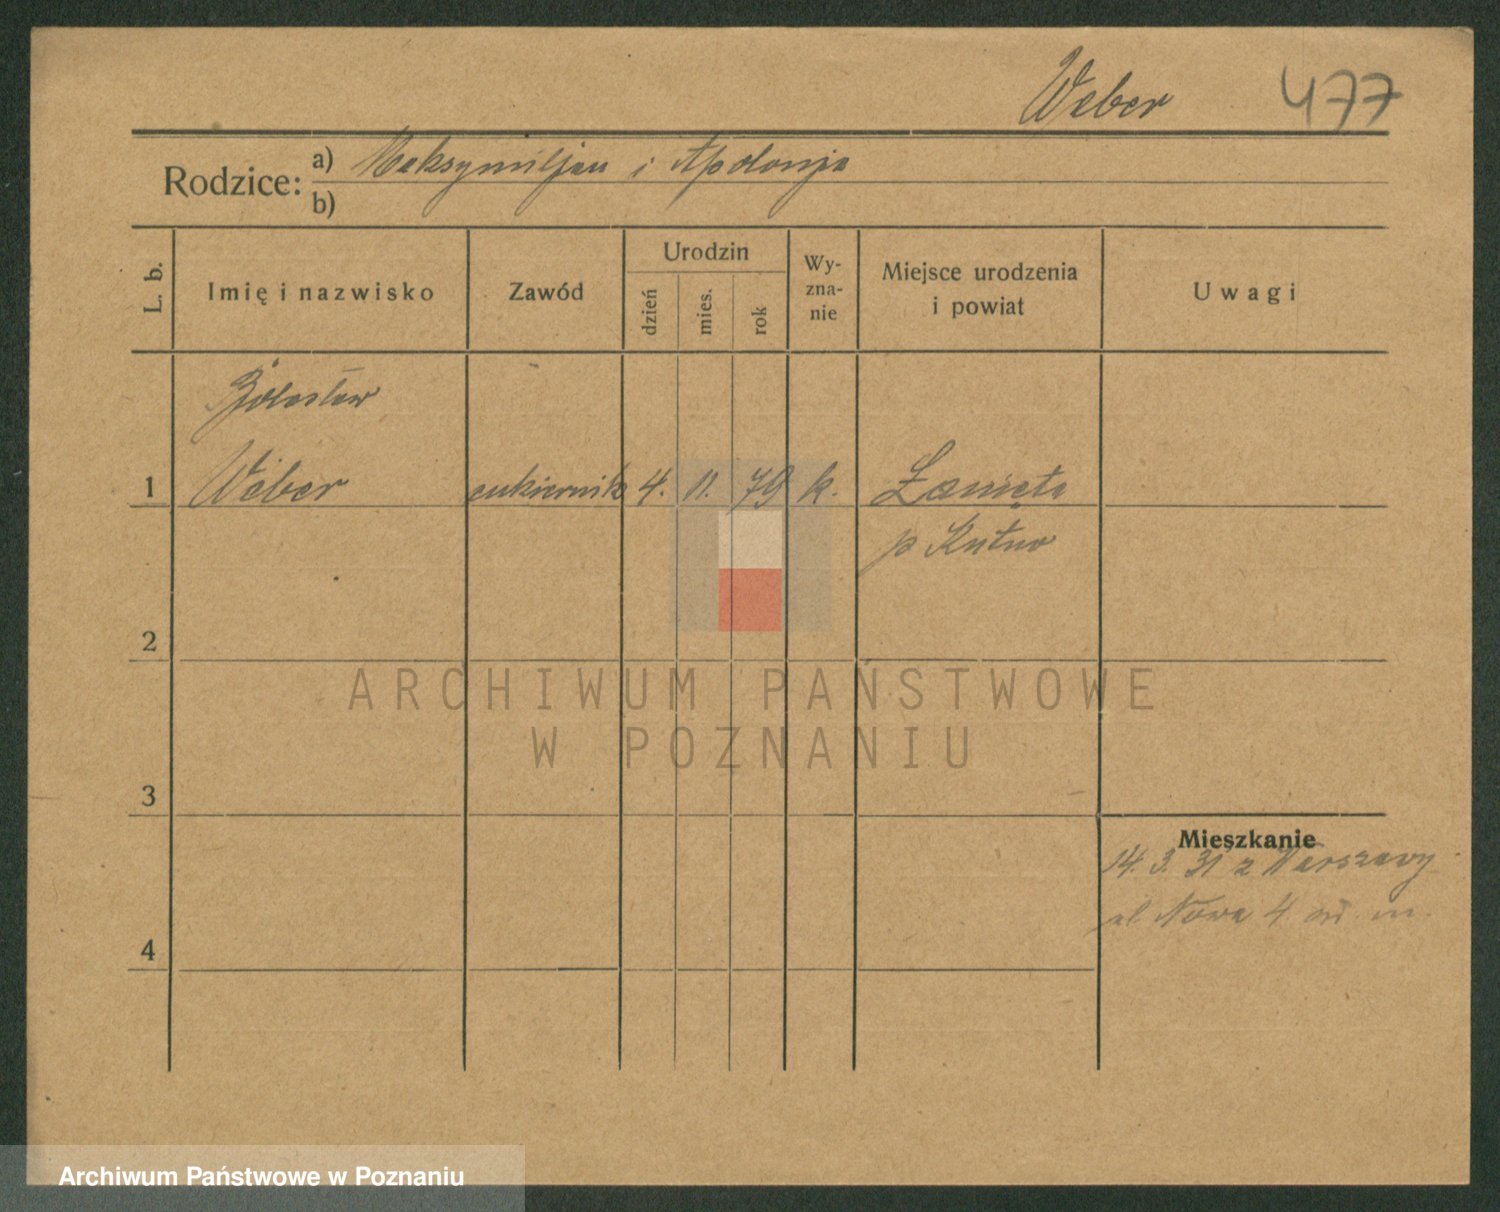 Weber 477
Rodzice: a) Maksymiljan i Apolonja
b)
L. b.
Imię i nazwisko
Zawód
Urodzin
dzień
mies.
rok
Wy-
zna-
nie
Miejsce urodzenia
i powiat
Uwagi
Bolesław
1 Weber cukiernik 4. 11. 79 k. Łanięta
p Kutno
2
3
4
Mieszkanie
14. 3. 31 z Warszawy
ul Nowa 4
ARCHIWUM PAŃSTWOWE
W POZNANIU
Archiwum Państwowe w Poznaniu